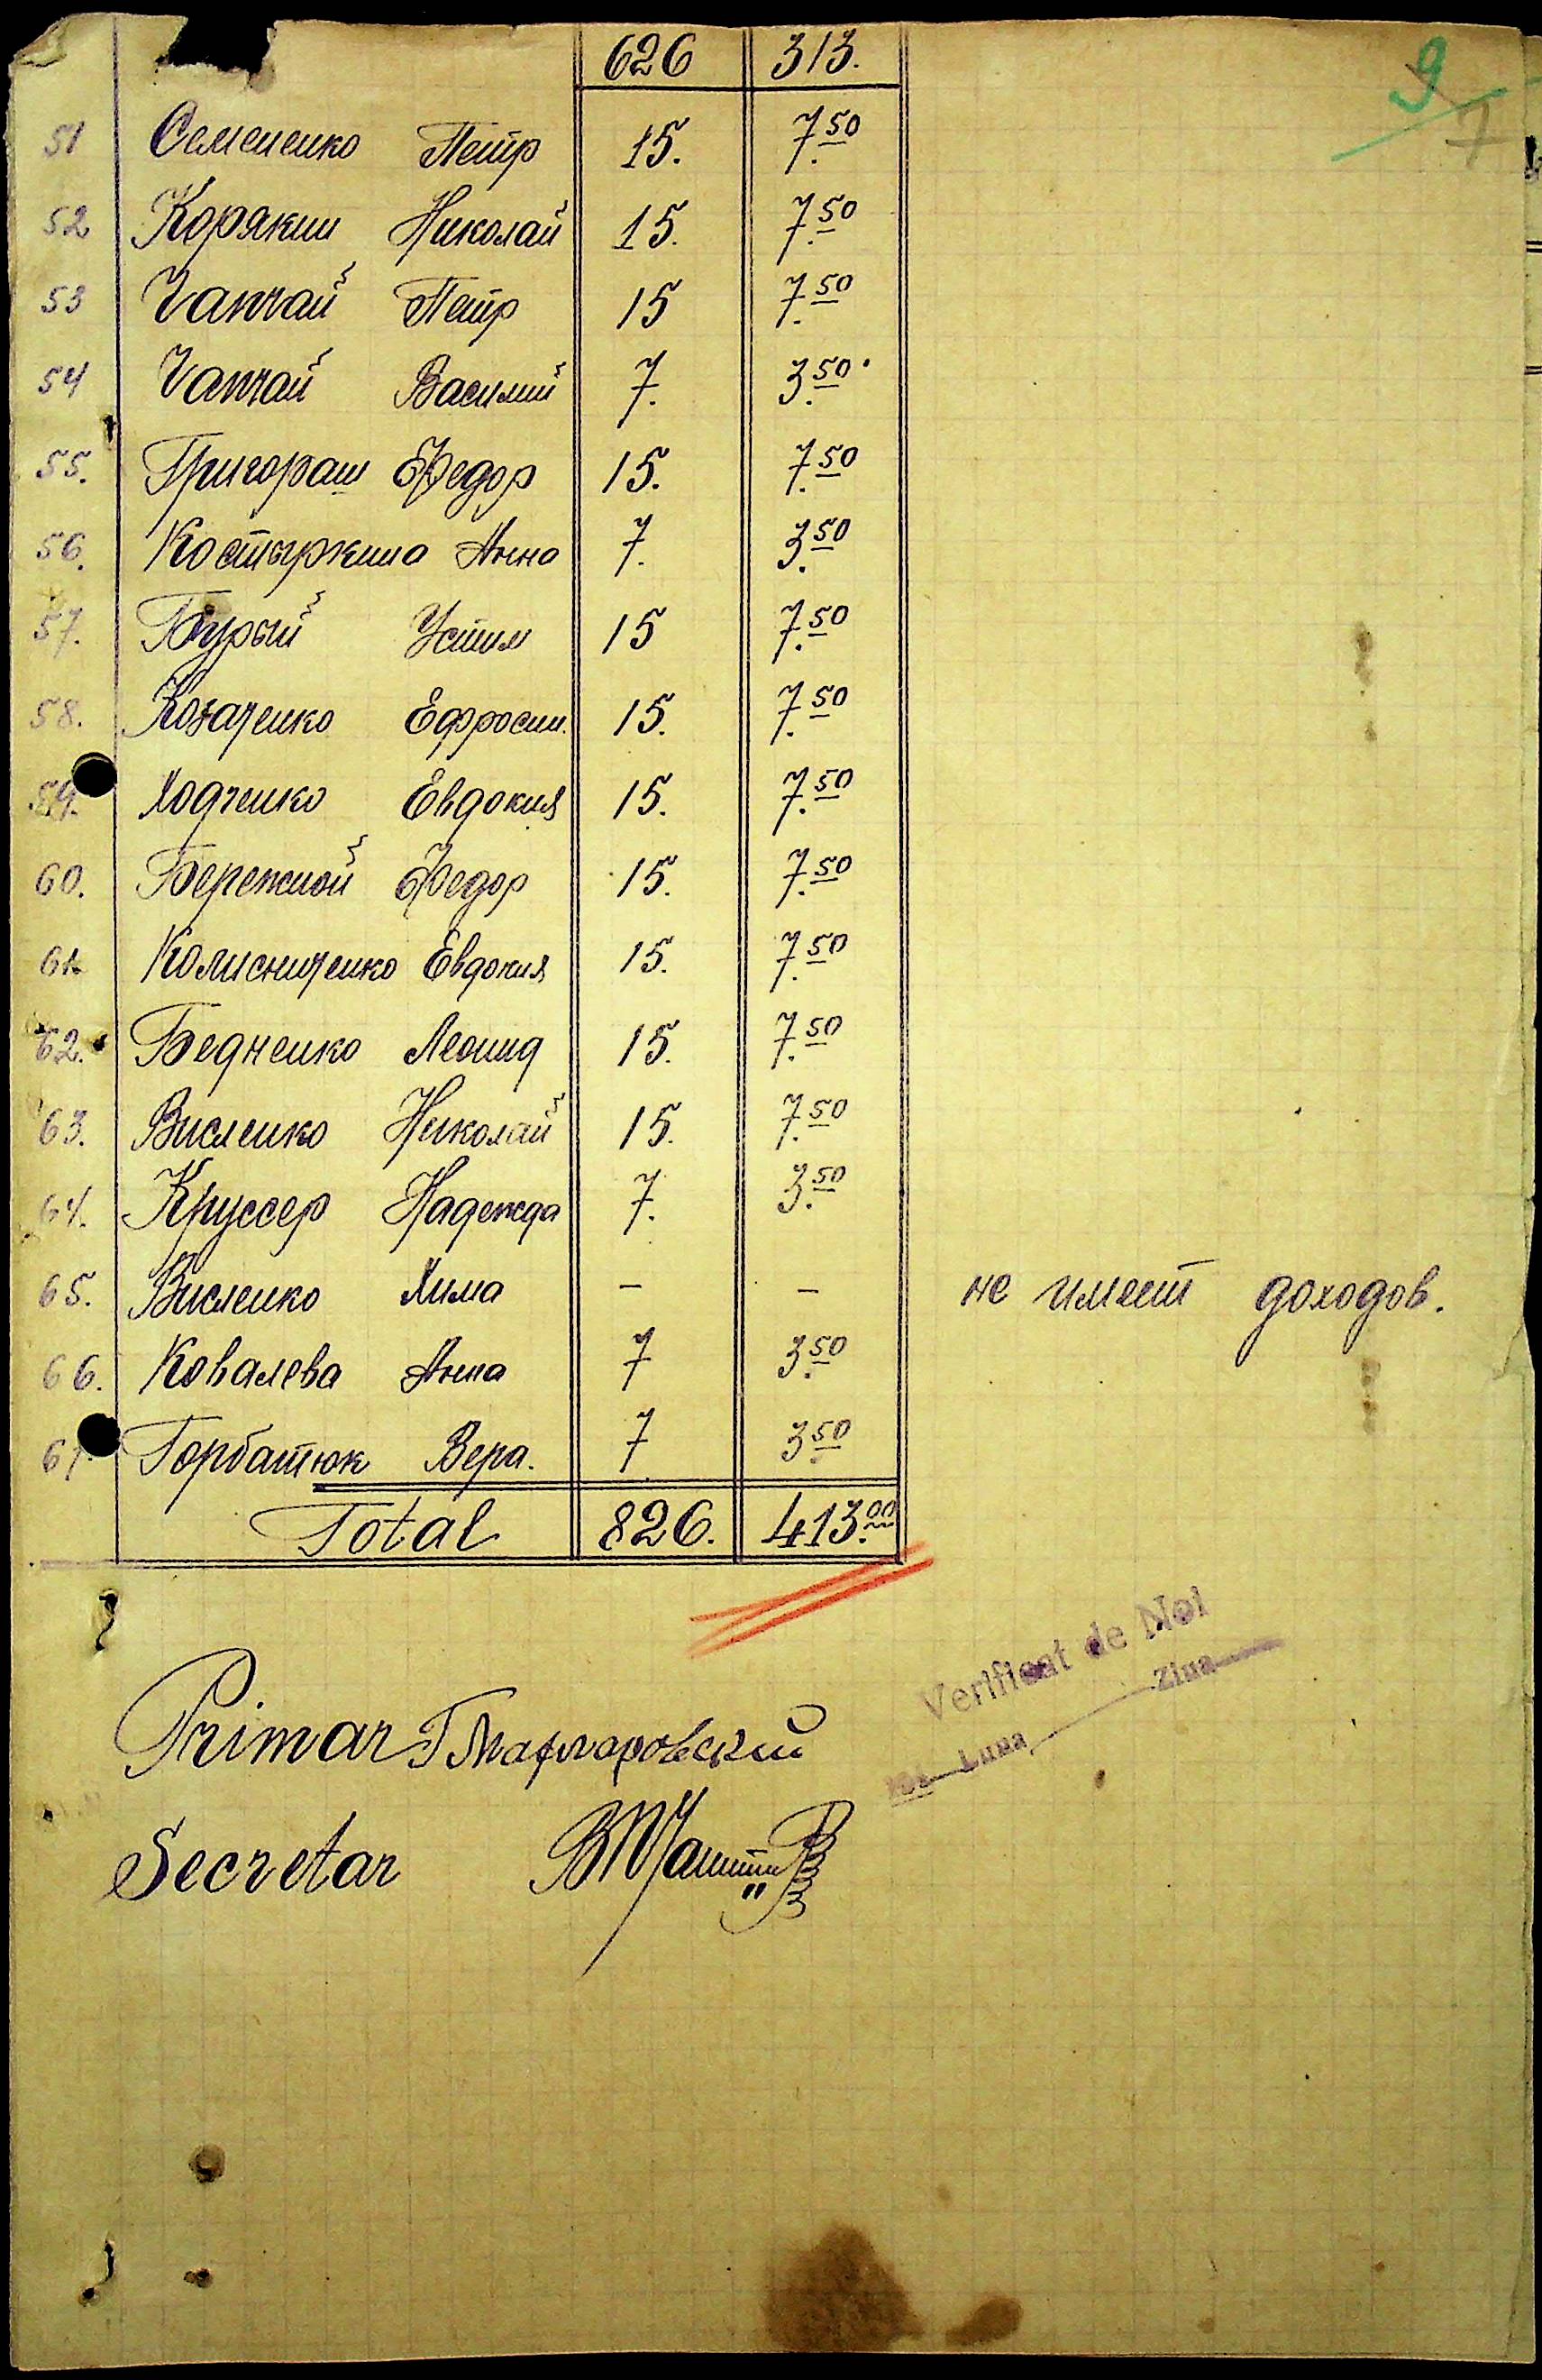 626 313.
9
7
51 Семененко Петр 15. 7.50
52 Корякин Николай 15. 7.50
53 Чапчай Петр 15 7.50
54 Чапчай Василий 7. 3.50
55. Григораш Федор 15. 7.50
56. Костыркина Анна 7. 3.50
57. Бурый Устим 15 7.50
58. Козаченко Ефросин. 15. 7.50
59. Ходченко Евдокия 15. 7.50
60. Бережной Федор 15. 7.50
61. Колисниченко Евдокия 15. 7.50
62. Бедненко Леонид 15. 7.50
63. Висленко Николай 15. 7.50
64. Круссер Надежда 7. 3.50
65. Висленко Хима – – не имеет доходов.
66. Ковалева Анна 7 3.50
67. Горбатюк Вера. 7 3.50
Total 826. 413.00
Verificat de Noi
Luna Ziua
Primar
Secretar